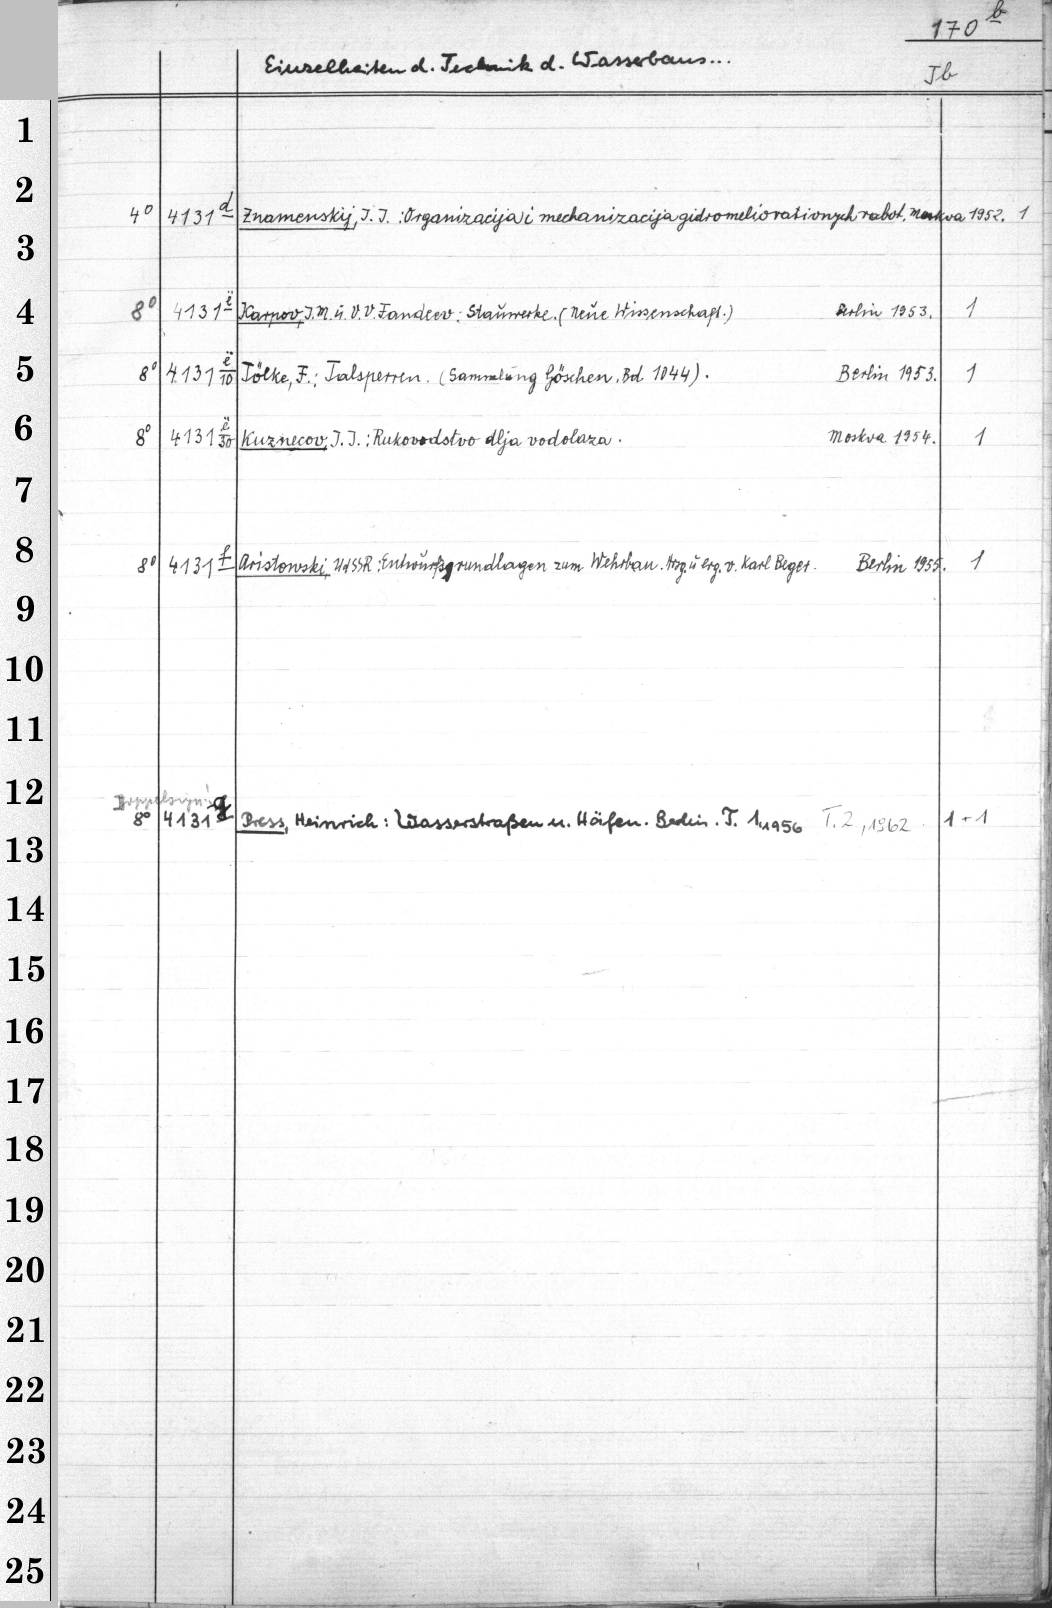 170 b
Einzelheiten d. Technik d. Wasserbaus...
Jb
1
2
4° 4131 d Znamenskij, J. J. : Organizacija i mechanizacija gidromeliorativnych rabot. Moskva 1952. 1
3
4 8° 4131 e Karpov, J. M. u. V. V. Fandeev : Stauwerke. (Neue Wissenschaft.) Berlin 1953. 1
5 8° 4131 e/10 Tölke, F. : Talsperren. (Sammlung Göschen. Bd 1044). Berlin 1953. 1
6 8° 4131 e/30 Kuznecov, J. J. : Rukovodstvo dlja vodolaza. Moskva 1954. 1
7
8 8° 4131 f Aristowski, UdSSR : Entwurfsgrundlagen zum Wehrbau. Hrsg. u. erg. v. Karl Beger. Berlin 1955. 1
9
10
11
12 Doppelsign!
8° 4131 g Press, Heinrich : Wasserstraßen u. Häfen. Berlin. T. 1, 1956 T. 2, 1962. 1 + 1
13
14
15
16
17
18
19
20
21
22
23
24
25